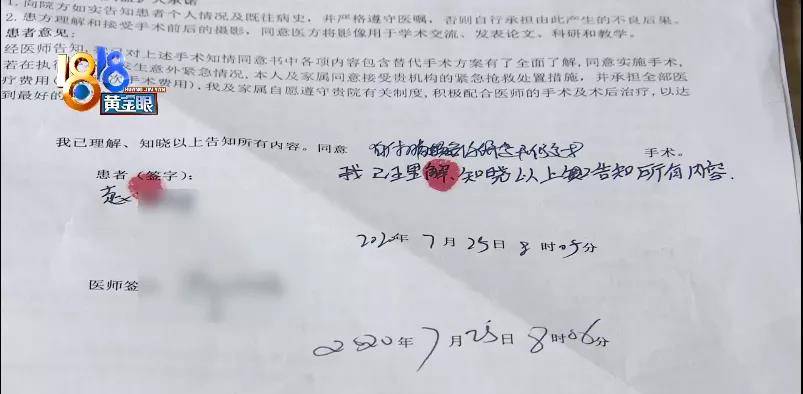 1. 向院方如实告知患者个人情况及既往病史，并严格遵守医嘱，否则自行承担由此产生的不良后果。
2. 患方理解和接受手术前后的摄影，同意医方将影像用于学术交流、发表论文、科研和教学。
患者意见：
经医师告知，我已对上述手术知情同意书中各项内容包含替代手术方案有了全面了解，同意实施手术，
若在执行 发生意外紧急情况，本人及家属同意接受贵机构的紧急抢救处置措施，并承担全部医
疗费用（ 次手术费用），我及家属自愿遵守贵院有关制度，积极配合医师的手术及术后治疗，以达
到最好的
1818
黄金眼
我已理解、知晓以上告知所有内容。同意 手术。
患者（签字）：
我已理解、知晓以上 告知所有内容.
2020年7月25日8时05分
医师签
2020年7月25日8时06分